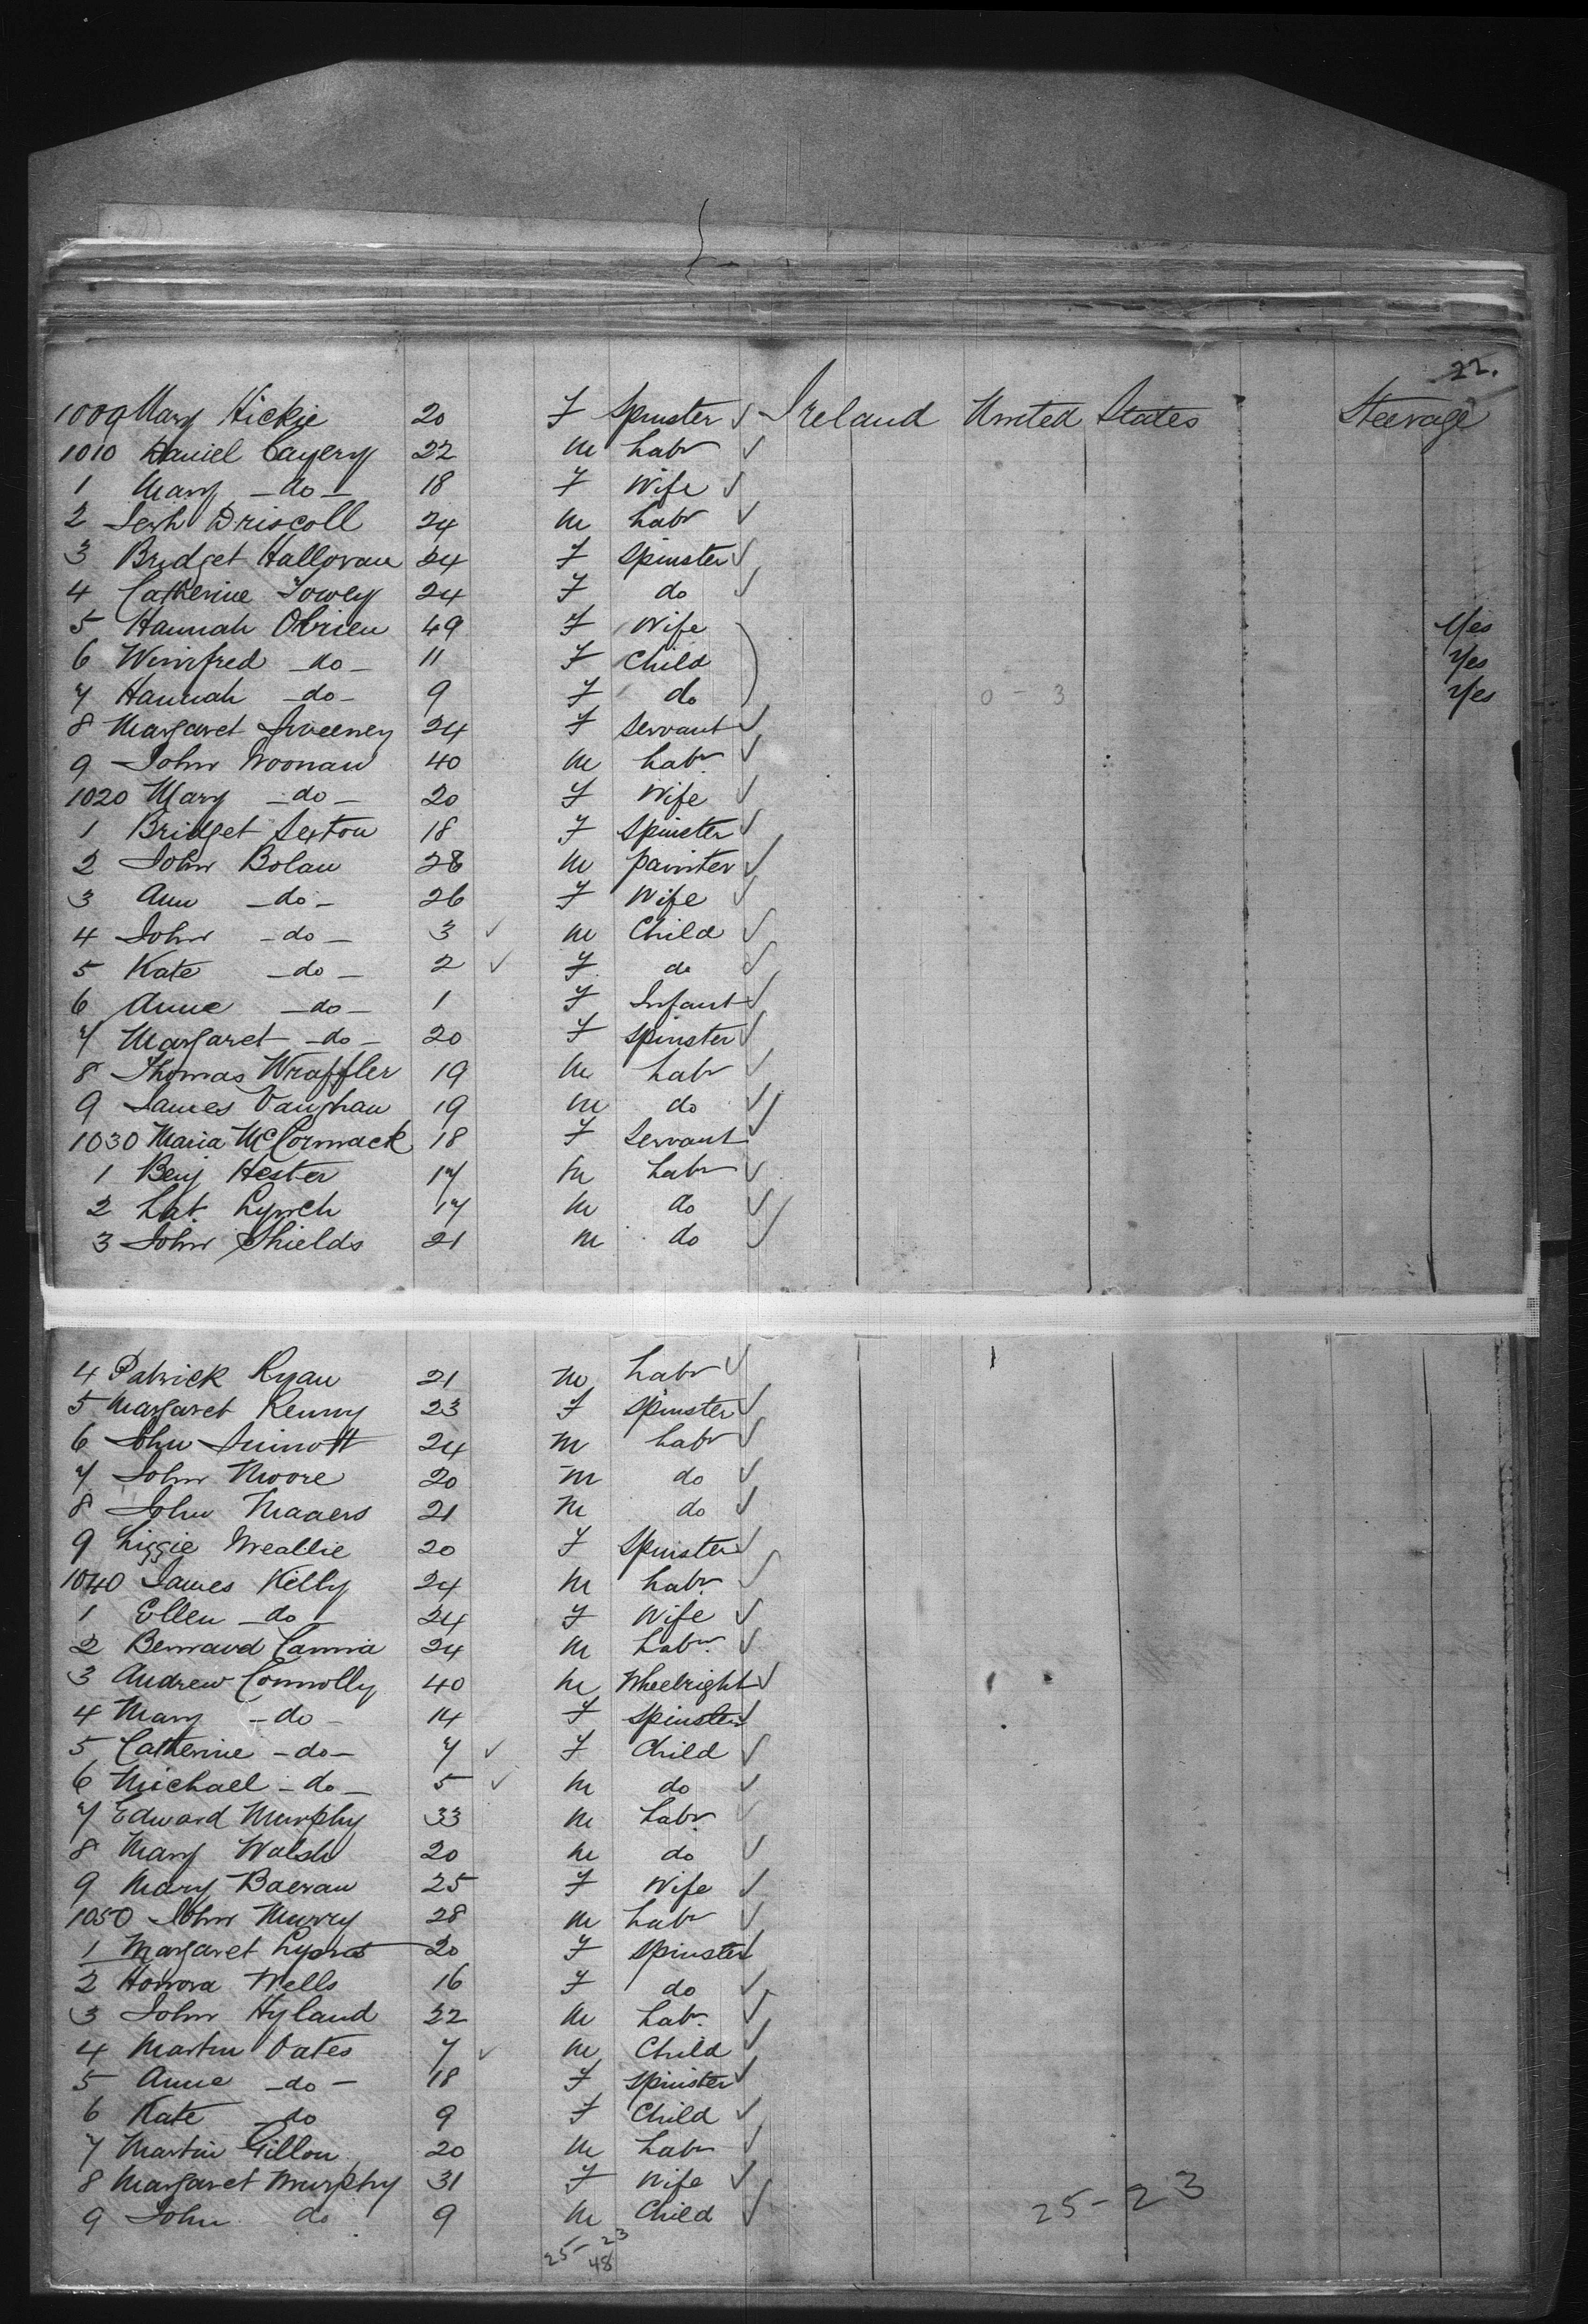 22.
1009 Mary Hickie 20 F Spinster Ireland United States Steerage
1010 Daniel Cayery 22 M Labr
1 Mary - do - 18 F Wife
2 Jerh Driscoll 24 M Labr
3 Bridget Halloran 24 F Spinster
4 Catherine Towey 24 F do
5 Hannah Obrien 49 F Wife Yes
6 Winifred - do - 11 F Child Yes
7 Hannah - do - 9 F do 0 - 3 Yes
8 Margaret Sweeney 24 F Servant
9 John Noonan 40 M Labr
1020 Mary - do - 20 F Wife
1 Bridget Sexton 18 F Spinster
2 John Bolan 28 M painter
3 Ann - do - 26 F Wife
4 John - do - 3 M Child
5 Kate - do - 2 F do
6 Anne - do - 1 F Infant
7 Margaret - do - 20 F Spinster
8 Thomas Wraffler 19 M Labr
9 James Vaughan 19 M do
1030 Maria McCormack 18 F Servant
1 Benj Hester 17 M Labr
2 Lat. Lynch 17 M do
3 John Shields 21 M do
4 Patrick Ryan 21 M Labr
5 Margaret Kenny 23 F Spinster
6 John Sinnott 24 M Labr
7 John Moore 20 M do
8 John 21 M do
9 Lizzie 20 F Spinster
1040 James Kelly 24 M Labr
1 Ellen - do - 24 F Wife
2 Bernard Cannia 24 M Labr
3 Andrew Connolly 40 M Wheelright
4 Mary - do - 14 F Spinster
5 Catherine - do - 7 F Child
6 Michael - do - 5 M do
7 Edward Murphy 33 M Labr
8 Mary Walsh 20 M do
9 Mary 25 F Wife
1050 John Murry 28 M Labr
1 Margaret Lyons 20 F Spinster
2 Honora Wells 16 F do
3 John Hyland 22 M Labr
4 Martin Oates 7 M Child
5 Anne - do - 18 F Spinster
6 Kate - do 9 F Child
7 Martin Gillon 20 M Labr
8 Margaret Murphy 31 F Wife
9 John do 9 M Child
25-23
25-23
48